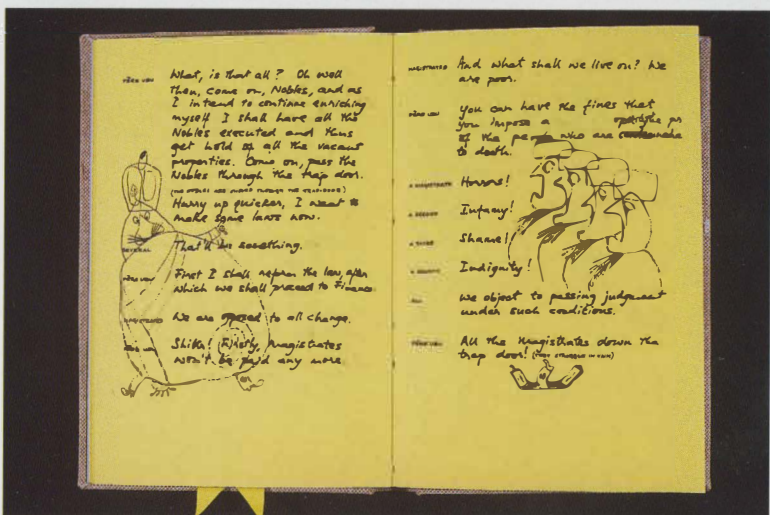 PÈRE UBU What, is that all? Oh well
then, come on, Nobles, and as
I intend to continue enriching
myself I shall have all the
Nobles executed and thus
get hold of all the vacant
properties. Come on, pass the
Nobles through the trap door.
(THE NOBLES ARE PUSHED THROUGH THE TRAP-DOOR)
Hurry up quicker, I want to
make some laws now.
SEVERAL That'll be something.
PÈRE UBU First I shall reform the law, after
which we shall proceed to Finance.
MAGISTRATES We are opposed to all change.
PÈRE UBU Shikt! Firstly, magistrates
won't be paid any more.
MAGISTRATES And what shall we live on? We
are poor.
PÈRE UBU You can have the fines that
you impose a
of the people who are
to death.
A MAGISTRATE Horrors!
A SECOND Infamy!
A THIRD Shame!
A FOURTH Indignity!
ALL We object to passing judgement
under such conditions.
PÈRE UBU All the magistrates down the
trap door! (THEY STRUGGLE IN VAIN)